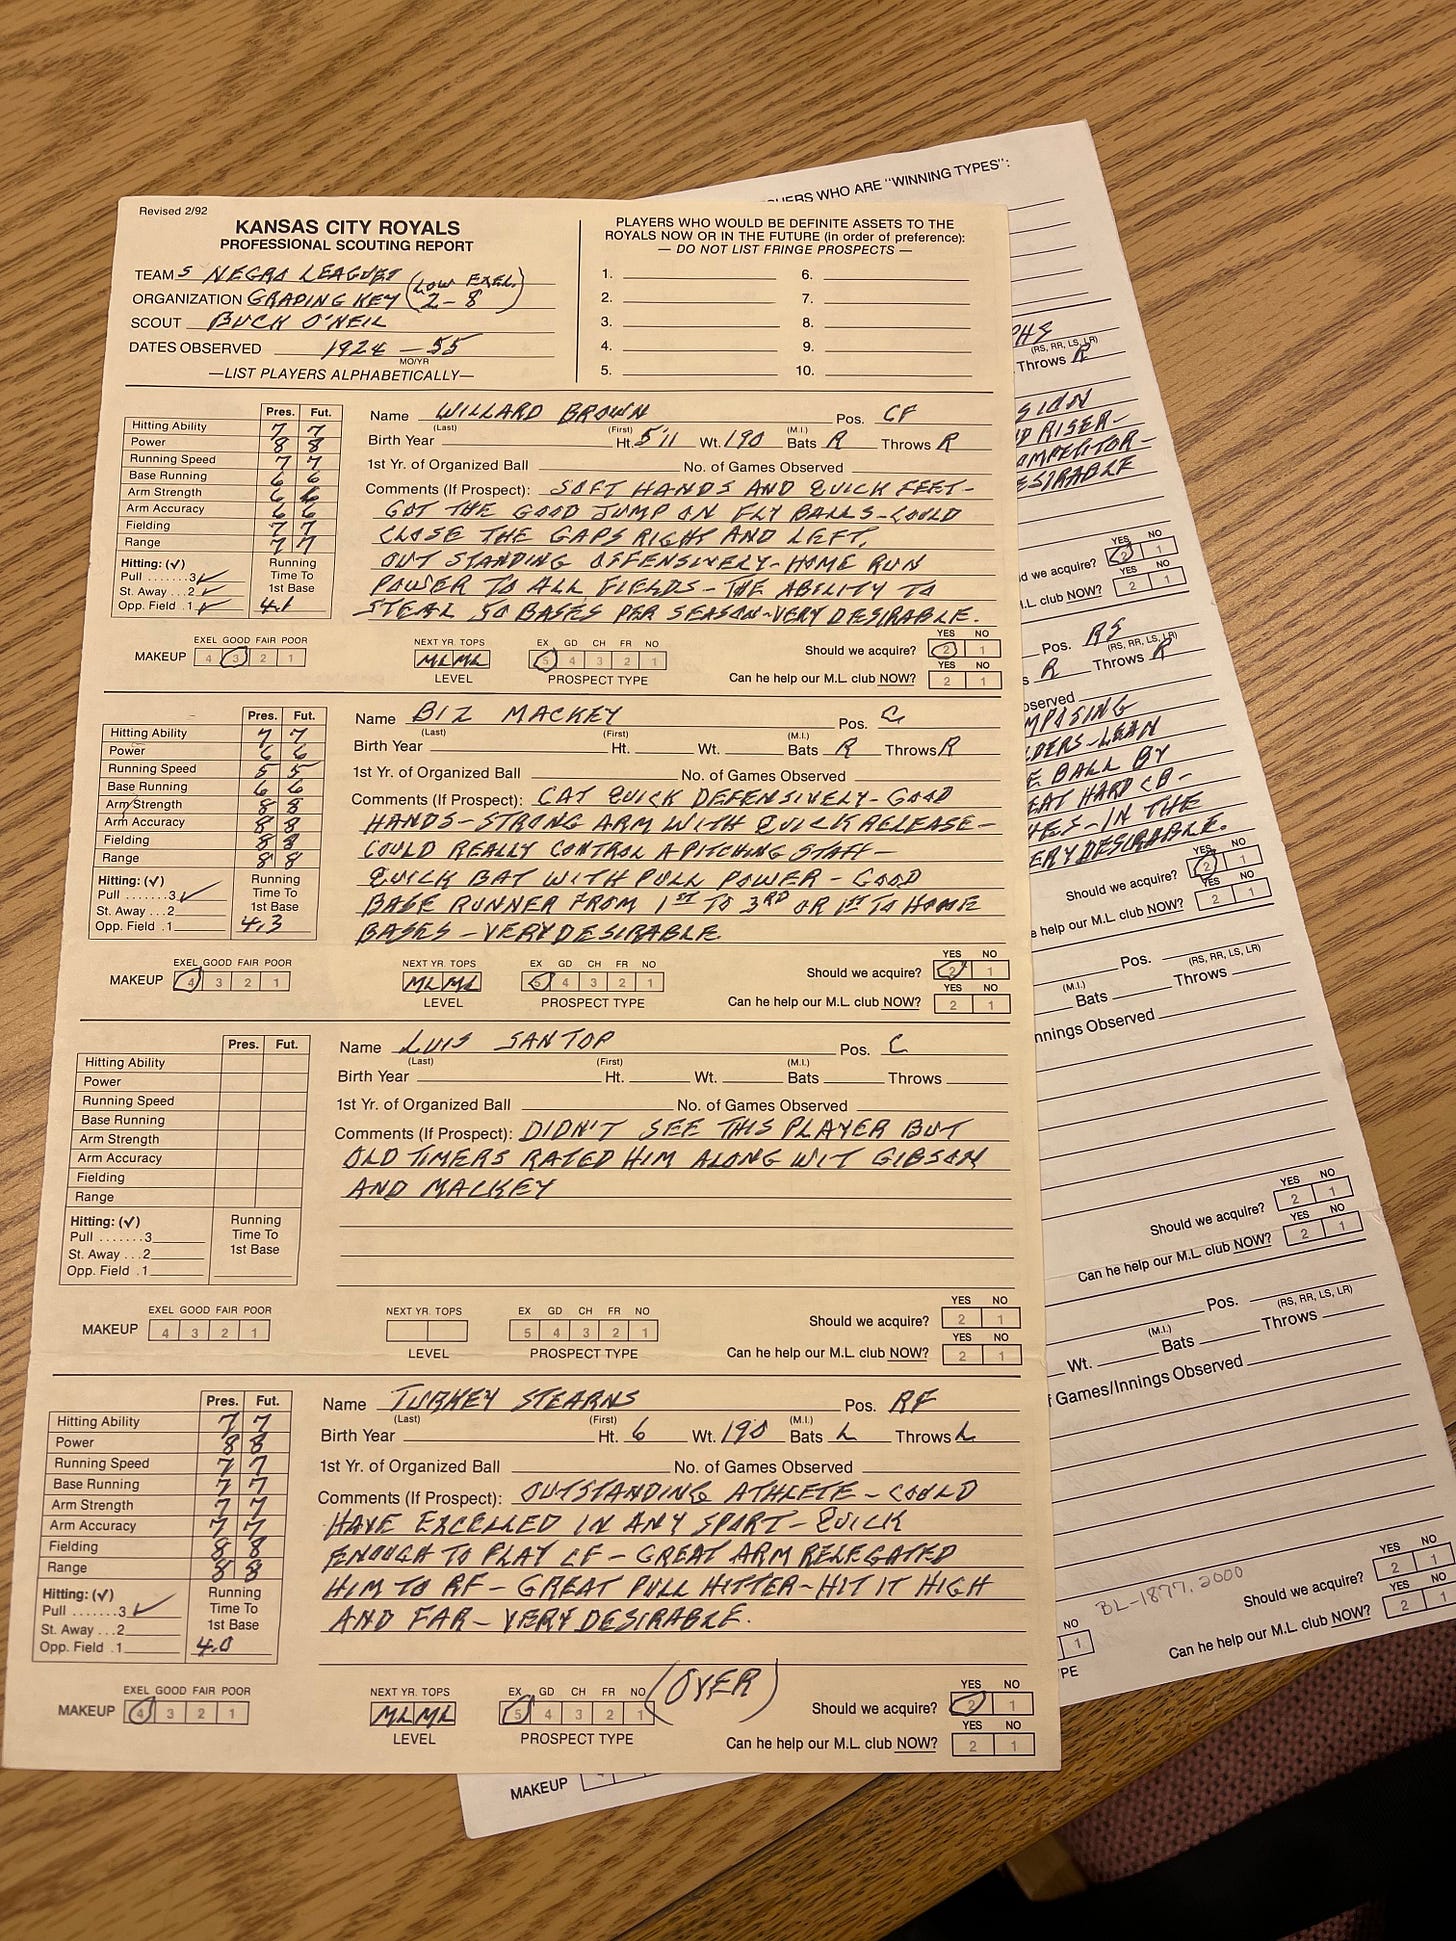 Revised 2/92
KANSAS CITY ROYALS
PROFESSIONAL SCOUTING REPORT
TEAMS NEGRO LEAGUES
ORGANIZATION GRADING KEY (LOW EXEL. 2-8)
SCOUT BUCK O'NEIL
DATES OBSERVED 1924-55
MO/YR
—LIST PLAYERS ALPHABETICALLY—
PLAYERS WHO WOULD BE DEFINITE ASSETS TO THE
ROYALS NOW OR IN THE FUTURE (in order of preference):
— DO NOT LIST FRINGE PROSPECTS —
1. 6.
2. 7.
3. 8.
4. 9.
5. 10.
Pres. Fut.
Hitting Ability 7 7
Power 8 8
Running Speed 7 7
Base Running 6 6
Arm Strength 6 6
Arm Accuracy 6 6
Fielding 7 7
Range 7 7
Hitting: (✓) Running
Pull .......3 ✓ Time To
St. Away ...2 ✓ 1st Base
Opp. Field .1 ✓ 4.1
Name WILLARD BROWN Pos. CF
(Last) (First) (M.I.)
Birth Year Ht. 5'11 Wt. 190 Bats R Throws R
1st Yr. of Organized Ball No. of Games Observed
Comments (If Prospect): SOFT HANDS AND QUICK FEET-
GOT THE GOOD JUMP ON FLY BALLS-COULD
CLOSE THE GAPS RIGHT AND LEFT.
OUT STANDING OFFENSIVELY-HOME RUN
POWER TO ALL FIELDS-THE ABILITY TO
STEAL 50 BASES PER SEASON-VERY DESIRABLE.
EXEL GOOD FAIR POOR
MAKEUP 4 3 2 1
NEXT YR. TOPS
ML ML
LEVEL
EX GD CH FR NO
5 4 3 2 1
PROSPECT TYPE
YES NO
Should we acquire? 2 1
YES NO
Can he help our M.L. club NOW? 2 1
Pres. Fut.
Hitting Ability 7 7
Power 6 6
Running Speed 5 5
Base Running 6 6
Arm Strength 8 8
Arm Accuracy 8 8
Fielding 8 8
Range 8 8
Hitting: (✓) Running
Pull .......3 ✓ Time To
St. Away ...2 1st Base
Opp. Field .1 4.3
Name BIZ MACKEY Pos. C
(Last) (First) (M.I.)
Birth Year Ht. Wt. Bats R Throws R
1st Yr. of Organized Ball No. of Games Observed
Comments (If Prospect): CAT QUICK DEFENSIVELY-GOOD
HANDS-STRONG ARM WITH QUICK RELEASE-
COULD REALLY CONTROL A PITCHING STAFF-
QUICK BAT WITH PULL POWER-GOOD
BASE RUNNER FROM 1ST TO 3RD OR 1ST TO HOME
BASES-VERY DESIRABLE.
EXEL GOOD FAIR POOR
MAKEUP 4 3 2 1
NEXT YR. TOPS
ML ML
LEVEL
EX GD CH FR NO
5 4 3 2 1
PROSPECT TYPE
YES NO
Should we acquire? 2 1
YES NO
Can he help our M.L. club NOW? 2 1
Pres. Fut.
Hitting Ability
Power
Running Speed
Base Running
Arm Strength
Arm Accuracy
Fielding
Range
Hitting: (✓) Running
Pull .......3 Time To
St. Away ...2 1st Base
Opp. Field .1
Name LUIS SANTOP Pos. C
(Last) (First) (M.I.)
Birth Year Ht. Wt. Bats Throws
1st Yr. of Organized Ball No. of Games Observed
Comments (If Prospect): DIDN'T SEE THIS PLAYER BUT
OLD TIMERS RATED HIM ALONG WIT GIBSON
AND MACKEY
EXEL GOOD FAIR POOR
MAKEUP 4 3 2 1
NEXT YR. TOPS
LEVEL
EX GD CH FR NO
5 4 3 2 1
PROSPECT TYPE
YES NO
Should we acquire? 2 1
YES NO
Can he help our M.L. club NOW? 2 1
Pres. Fut.
Hitting Ability 7 7
Power 8 8
Running Speed 7 7
Base Running 7 7
Arm Strength 7 7
Arm Accuracy 7 7
Fielding 8 8
Range 8 8
Hitting: (✓) Running
Pull .......3 ✓ Time To
St. Away ...2 1st Base
Opp. Field .1 4.0
Name TURKEY STEARNS Pos. RF
(Last) (First) (M.I.)
Birth Year Ht. 6 Wt. 190 Bats L Throws L
1st Yr. of Organized Ball No. of Games Observed
Comments (If Prospect): OUTSTANDING ATHLETE-COULD
HAVE EXCELLED IN ANY SPORT-QUICK
ENOUGH TO PLAY CF-GREAT ARM RELEGATED
HIM TO RF-GREAT PULL HITTER-HIT IT HIGH
AND FAR-VERY DESIRABLE.
(OVER)
EXEL GOOD FAIR POOR
MAKEUP 4 3 2 1
NEXT YR. TOPS
ML ML
LEVEL
EX GD CH FR NO
5 4 3 2 1
PROSPECT TYPE
YES NO
Should we acquire? 2 1
YES NO
Can he help our M.L. club NOW? 2 1
WHO ARE "WINNING TYPES":
(RS, RR, LS, LR)
Throws R
RISER-
YES NO
we acquire? 2 1
YES NO
club NOW? 2 1
Pos. RS
(RS, RR, LS, LR)
R Throws R
LEAN
BALL BY
HARD CB-
IN THE
DESIRABLE.
YES NO
Should we acquire? 2 1
YES NO
help our M.L. club NOW? 2 1
Pos.
(RS, RR, LS, LR)
(M.I.)
Bats Throws
Observed
YES NO
Should we acquire? 2 1
YES NO
Can he help our M.L. club NOW? 2 1
Pos.
(RS, RR, LS, LR)
(M.I.)
Wt. Bats Throws
Games/Innings Observed
BL-1877.2000
NO
1
YES NO
Should we acquire? 2 1
YES NO
Can he help our M.L. club NOW? 2 1
MAKEUP